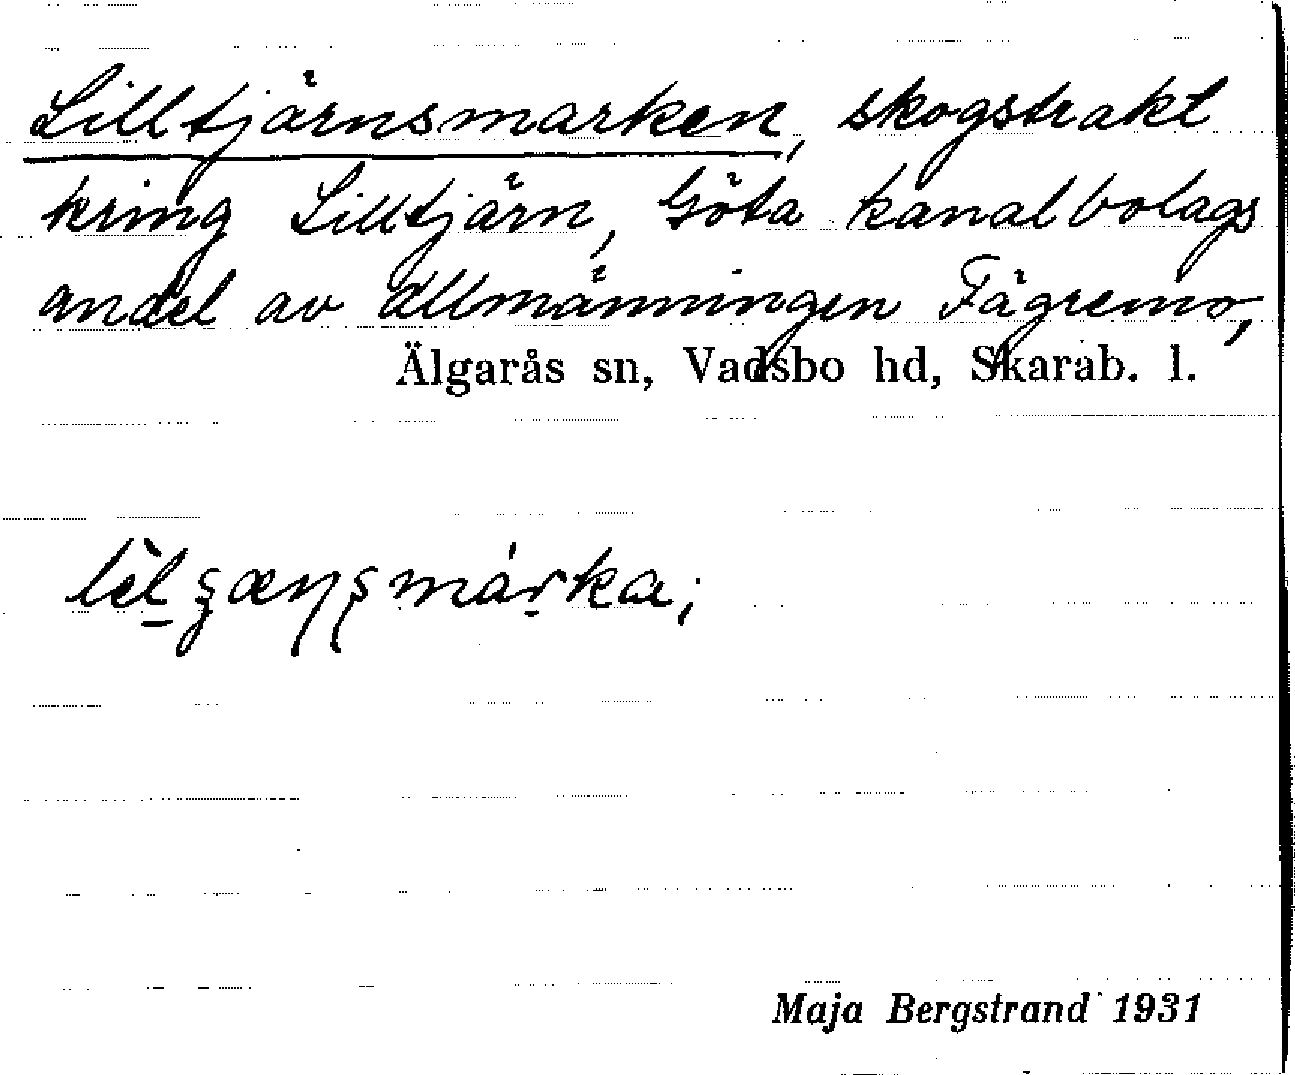 Lilltjärnsmarken, skogstrakt
kring Lilltjärn, Göta kanalbolags
andel av allmänningen Fägremo,
Älgarås sn, Vadsbo hd, Skarab. l.
Maja Bergstrand 1931